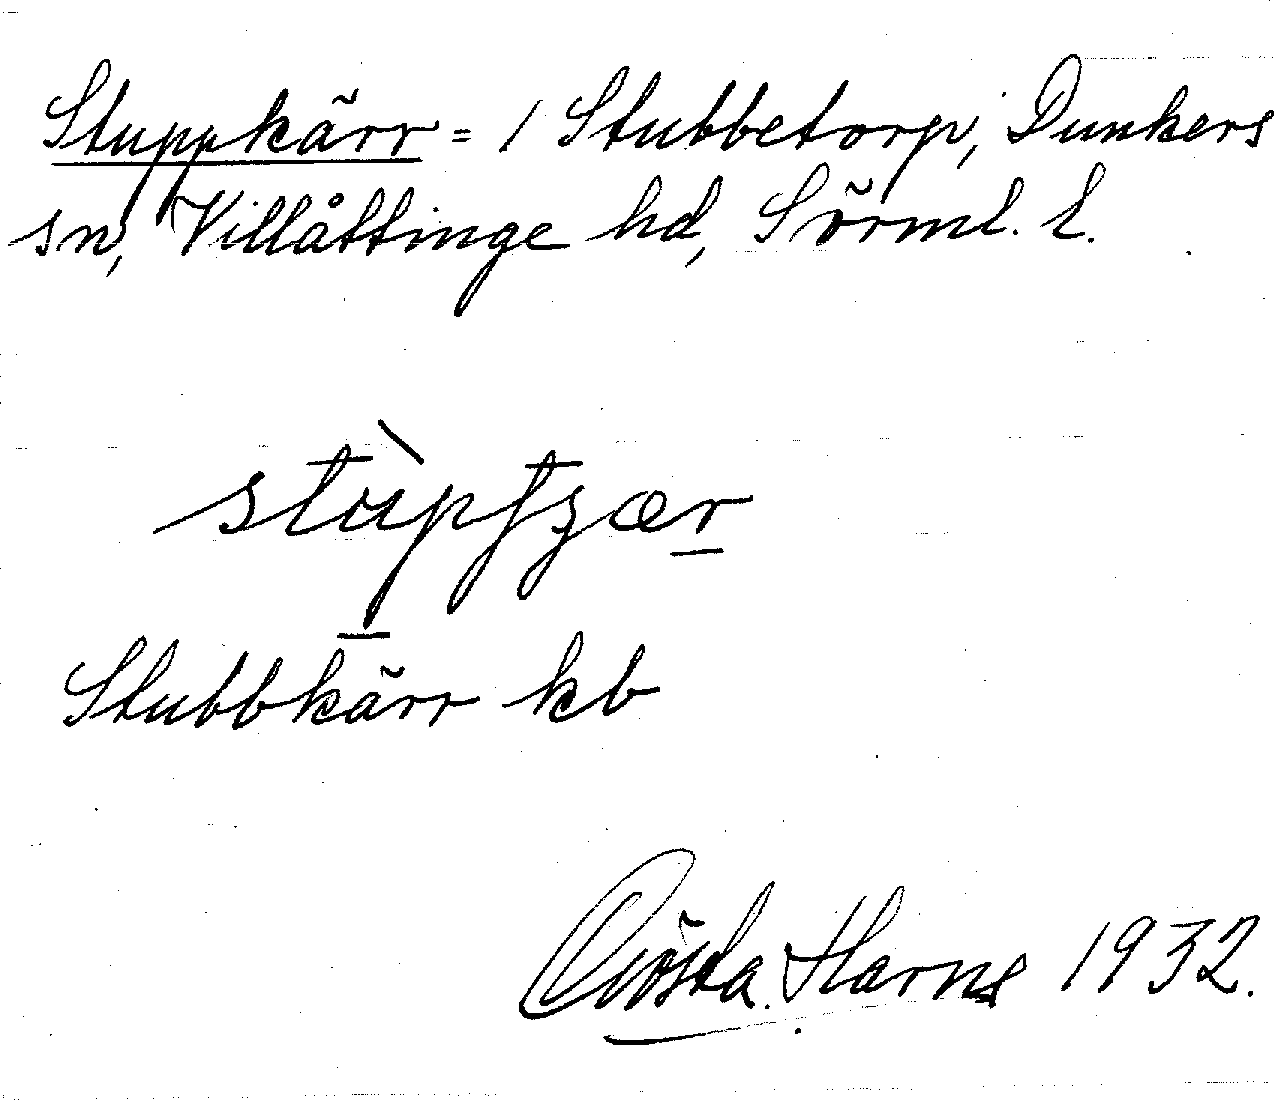 Stuppkärr = 1 Stubbetorp, Dunkers
sn, Villåttinge hd, Sörml. l.
stùptʒær
Stubbkärr kb
Gösta Harne 1932.